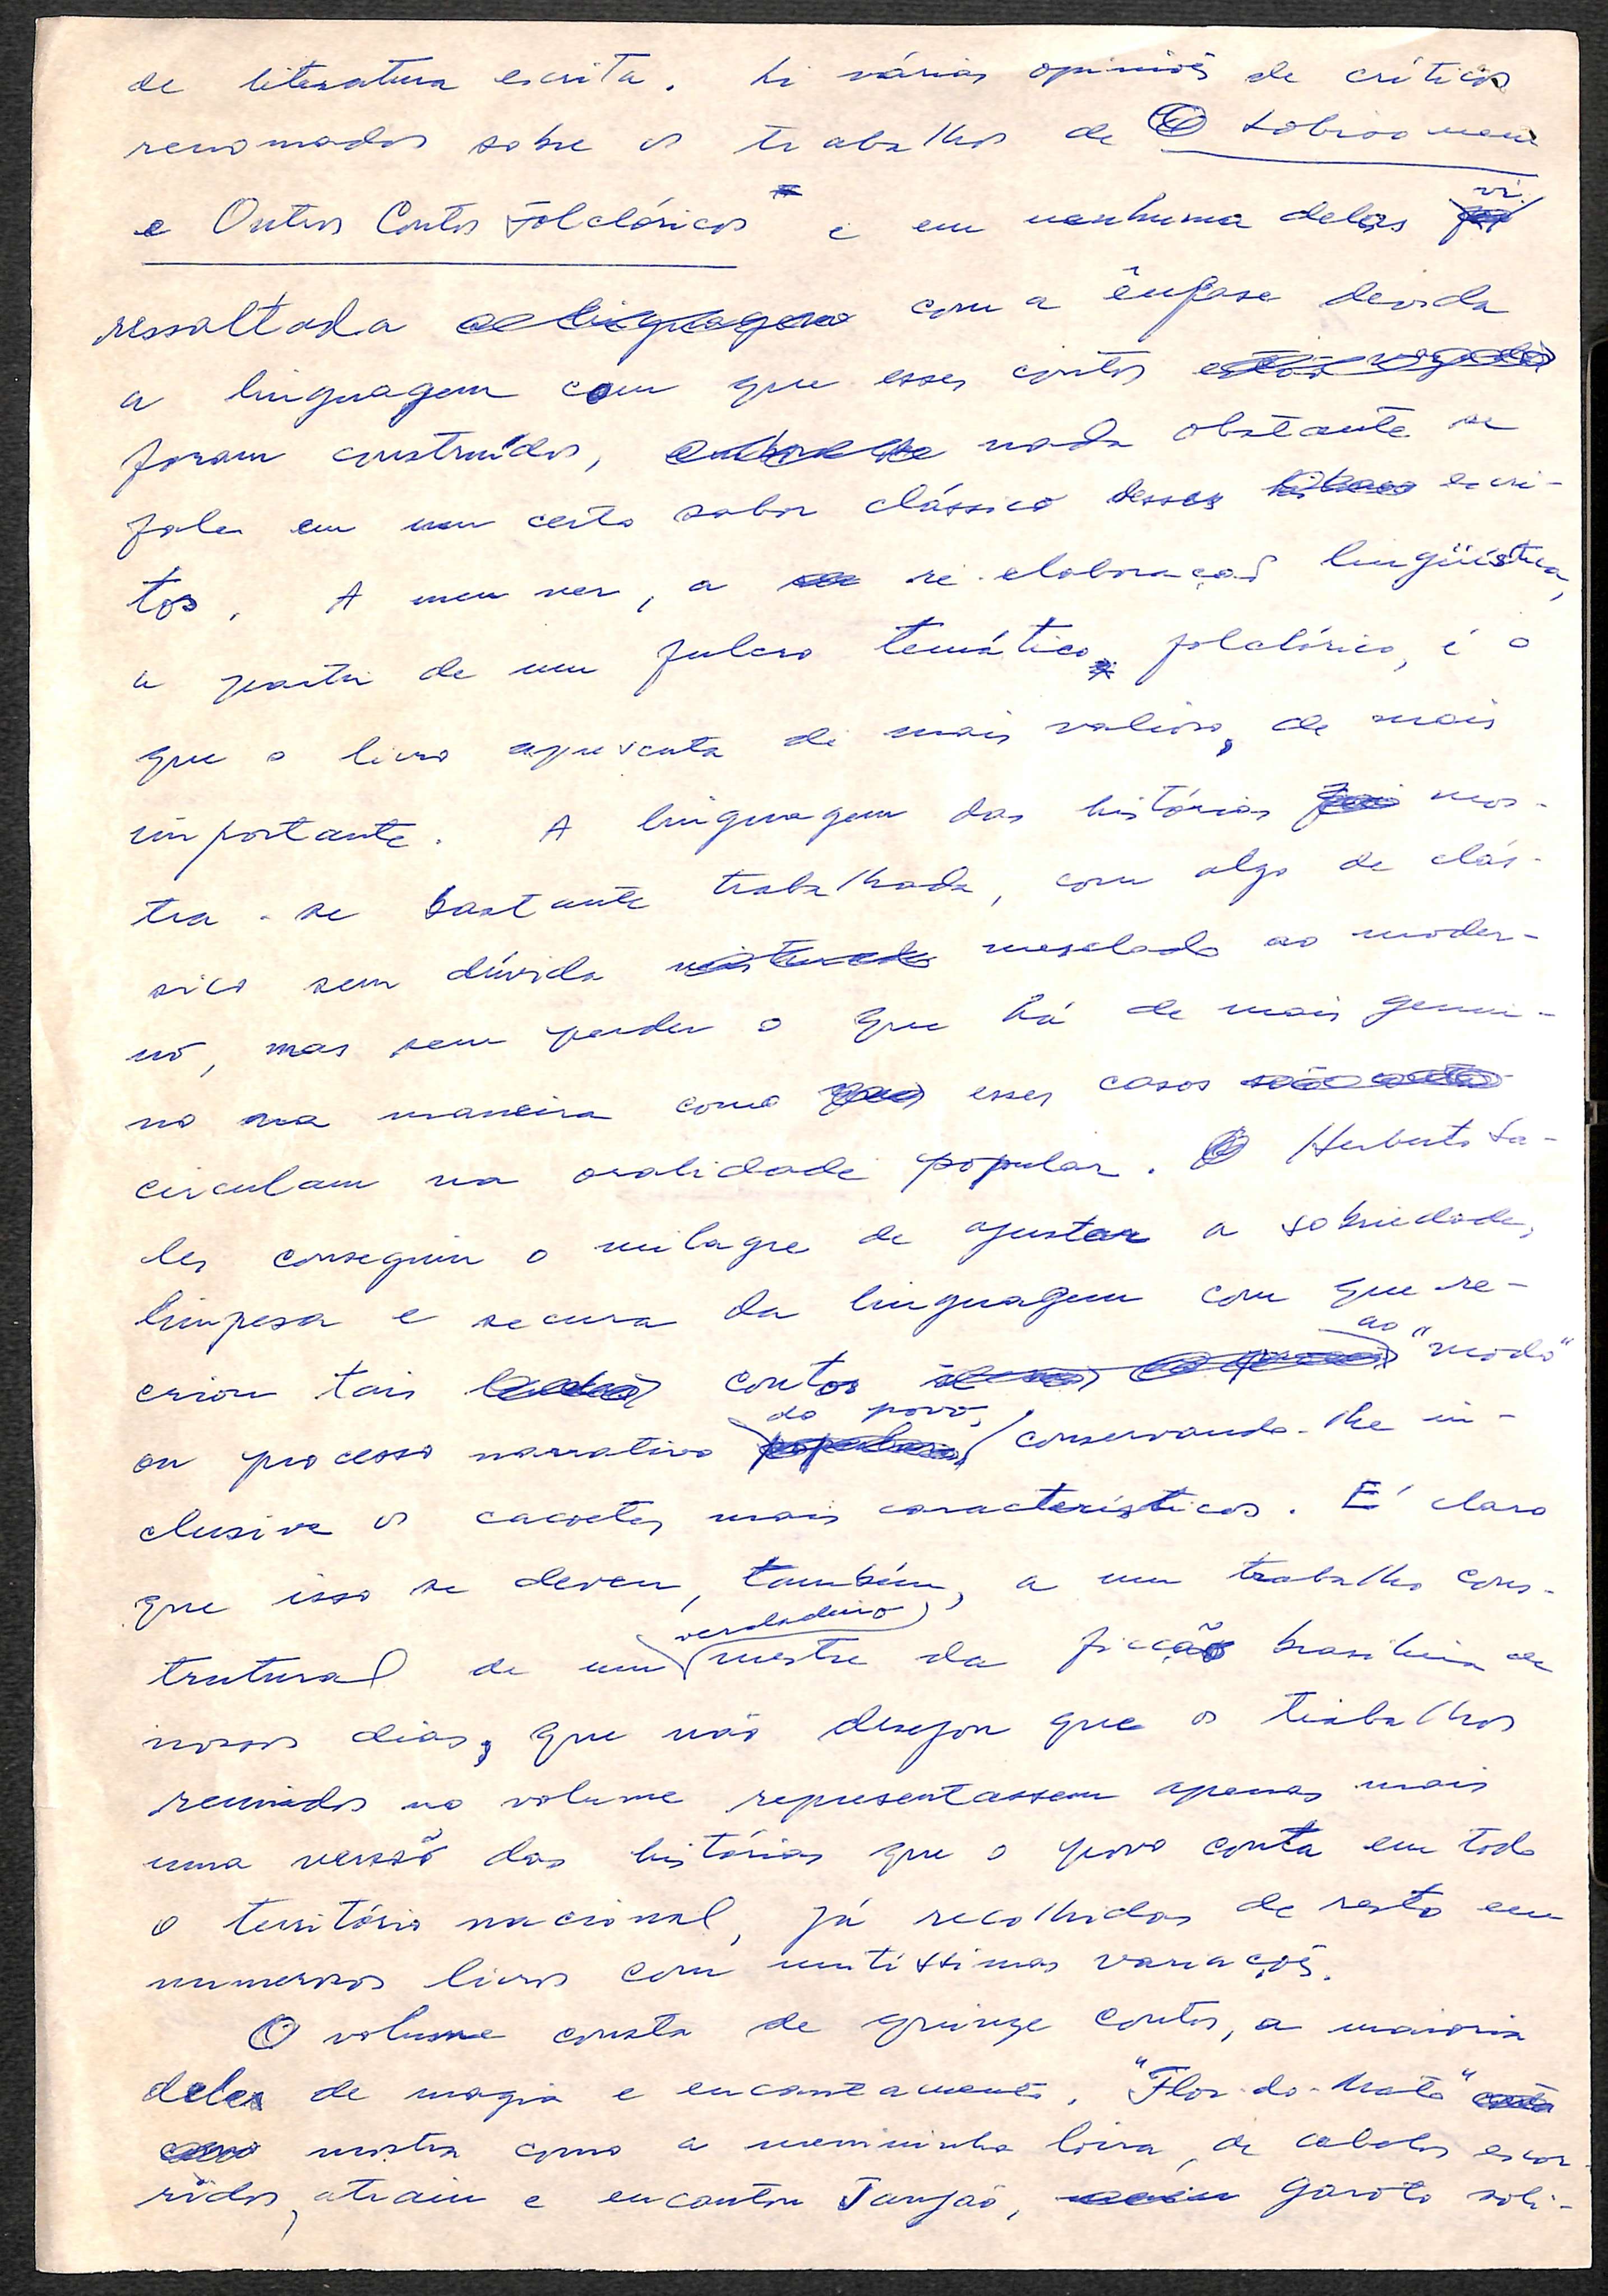 de literatura escrita. Li várias opiniões de críticos
renomados sobre os trabalhos de O Lobisomem
e Outros Contos Folclóricos e em nenhuma delas vi
ressaltada a linguagem com a ênfase devida
a linguagem com que esses contos
foram construídos, nada obstante se
fale em um certo sabor clássico desses escri-
tos. A meu ver, a re-elaboração lingüística,
a partir de um fulcro temático folclórico, é o
que o livro apresenta de mais valioso, de mais
importante. A linguagem das histórias mos-
tra-se bastante trabalhada, com algo de clás-
sico sem dúvida misturado mesclado ao moder-
no, mas sem perder o que há de mais genuí-
no na maneira como esses casos
circulam na oralidade popular. Herberto Sa-
les conseguiu o milagre de ajustar a sobriedade,
limpesa e secura da linguagem com que re-
criou tais contos ao "modo"
ou processo narrativo do povo, conservando-lhe in-
clusive os cacoetes mais característicos. É claro
que isso se deveu, também, a um trabalho cons-
trutural de um verdadeiro mestre da ficção brasileira de
nossos dias, que não desejou que os trabalhos
reunidos no volume representassem apenas mais
uma versão das histórias que o povo conta em todo
o território nacional, já recolhidas de resto em
numerosos livros com muitíssimas variações.
O volume consta de quinze contos, a maioria
deles de magia e encantamento. "Flor-do-Mato"
mostra como a menininha loira, de cabelos escor-
ridos, atraiu e encantou Janjão, garoto soli-